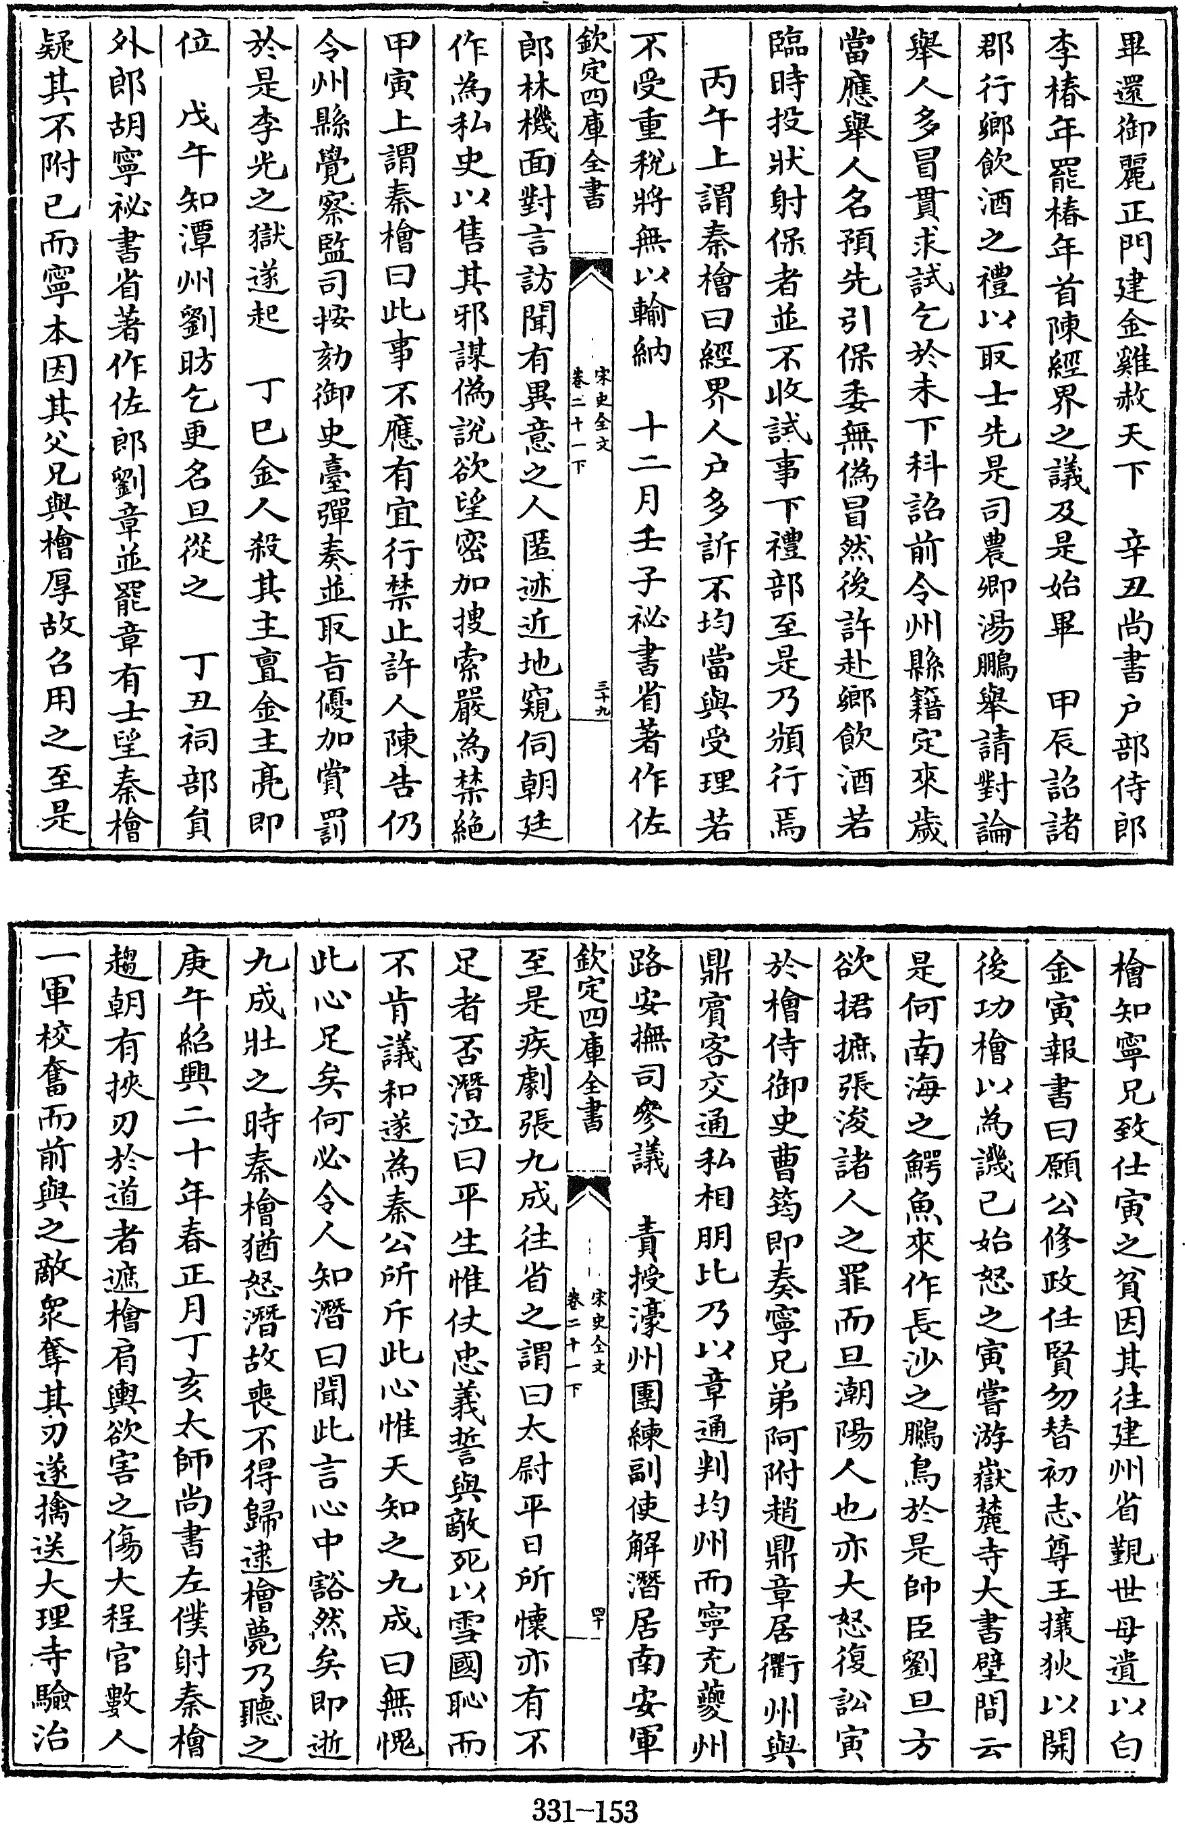 畢還御麗正門建金雞赦天下　辛丑尚書户部侍郎
李椿年罷椿年首陳經界之議及是始畢　甲辰詔諸
郡行鄉飲酒之禮以取士先是司農卿湯鵬舉請對論
舉人多冒貫求試乞於未下科詔前令州縣籍定來歲
當應舉人名預先引保委無偽冒然後許赴鄉飲酒若
臨時投狀射保者並不收試事下禮部至是乃頒行焉
丙午上謂秦檜曰經界人户多訴不均當與受理若
不受重税將無以輸納　十二月壬子祕書省著作佐
欽定四庫全書
宋史全文
卷二十一下
三十九
郎林機面對言訪聞有異意之人匿迹近地窺伺朝廷
作為私史以售其邪謀偽説欲望密加搜索嚴為禁絶
甲寅上謂秦檜曰此事不應有宜行禁止許人陳告仍
令州縣覺察監司按劾御史臺彈奏並取旨優加賞罰
於是李光之獄遂起　丁巳金人殺其主亶金主亮即
位　戊午知潭州劉昉乞更名旦從之　丁丑祠部員
外郎胡寧祕書省著作佐郎劉章並罷章有士望秦檜
疑其不附已而寧本因其父兄與檜厚故召用之至是
檜知寧兄致仕寅之貧因其往建州省觀世母遺以白
金寅報書曰願公修政任賢勿替初志尊王攘狄以開
後功檜以為譏已始怒之寅嘗游嶽麓寺大書壁間云
是何南海之鰐魚來作長沙之鵩鳥於是帥臣劉旦方
欲捃摭張浚諸人之罪而旦潮陽人也亦大怒復訟寅
於檜侍御史曹筠即奏寧兄弟阿附趙鼎章居衢州與
鼎賓客交通私相朋比乃以章通判均州而寧充夔州
路安撫司參議　責授濠州團練副使解潛居南安軍
欽定四庫全書
宋史全文
卷二十一下
四十
至是疾劇張九成往省之謂曰太尉平日所懷亦有不
足者否潛泣曰平生惟仗忠義誓與敵死以雪國恥而
不肯議和遂為秦公所斥此心惟天知之九成曰無愧
此心足矣何必令人知潛曰聞此言心中豁然矣即逝
九成壯之時秦檜猶怒潛故喪不得歸逮檜薨乃聽之
庚午紹興二十年春正月丁亥太師尚書左僕射秦檜
趨朝有挾刃於道者遮檜肩輿欲害之傷大程官數人
一軍校奮而前與之敵衆奪其刃遂擒送大理寺驗治
331-153